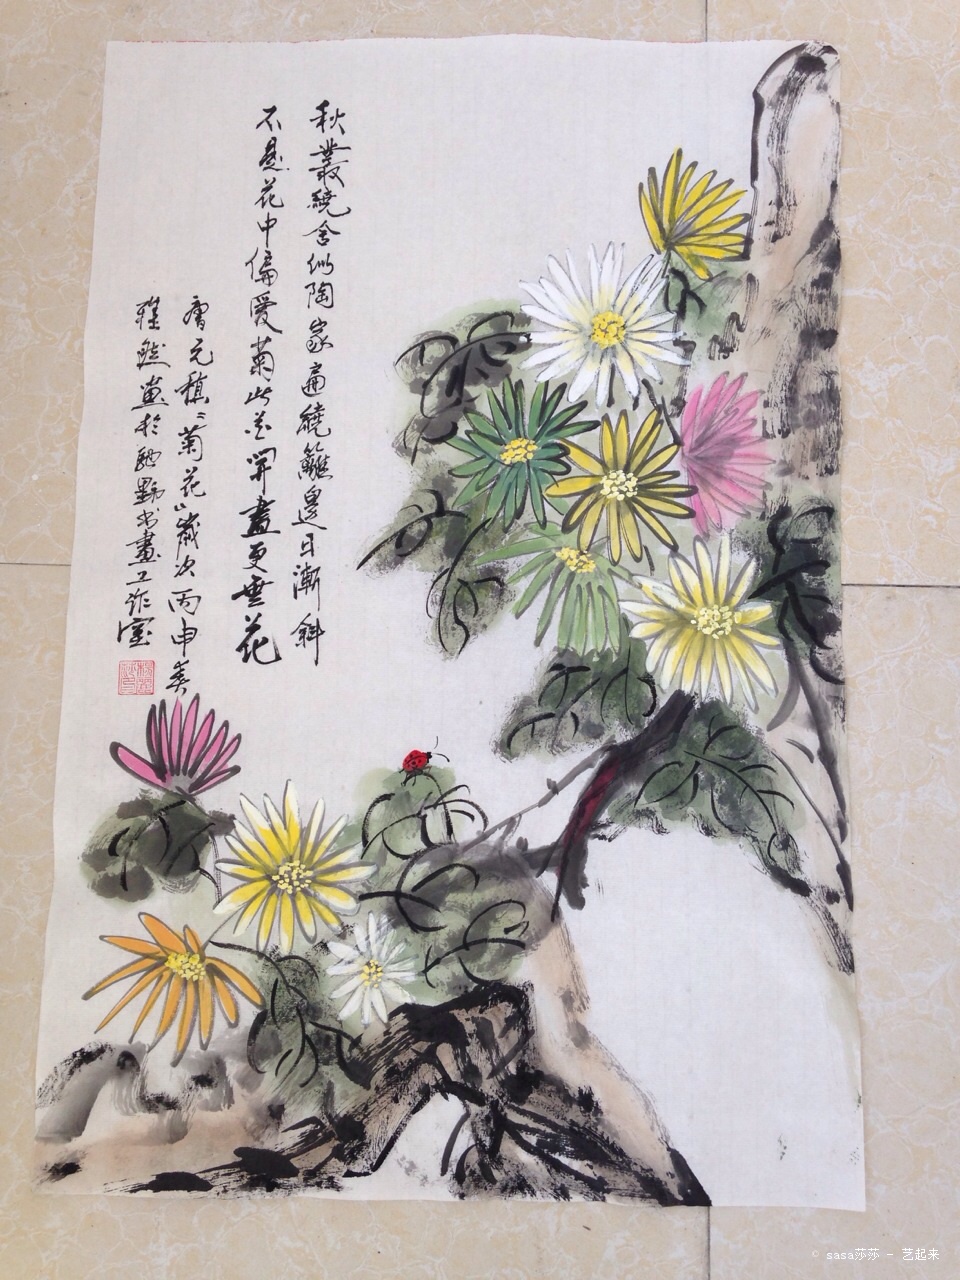 秋叢繞舍似陶家扁繞籬邊日漸斜
不是花中偏愛菊此花開盡更無花
唐元稹〻菊花〃歲次丙申冬
雅然畫於
書畫工作室
© sasa莎莎 - 艺起来